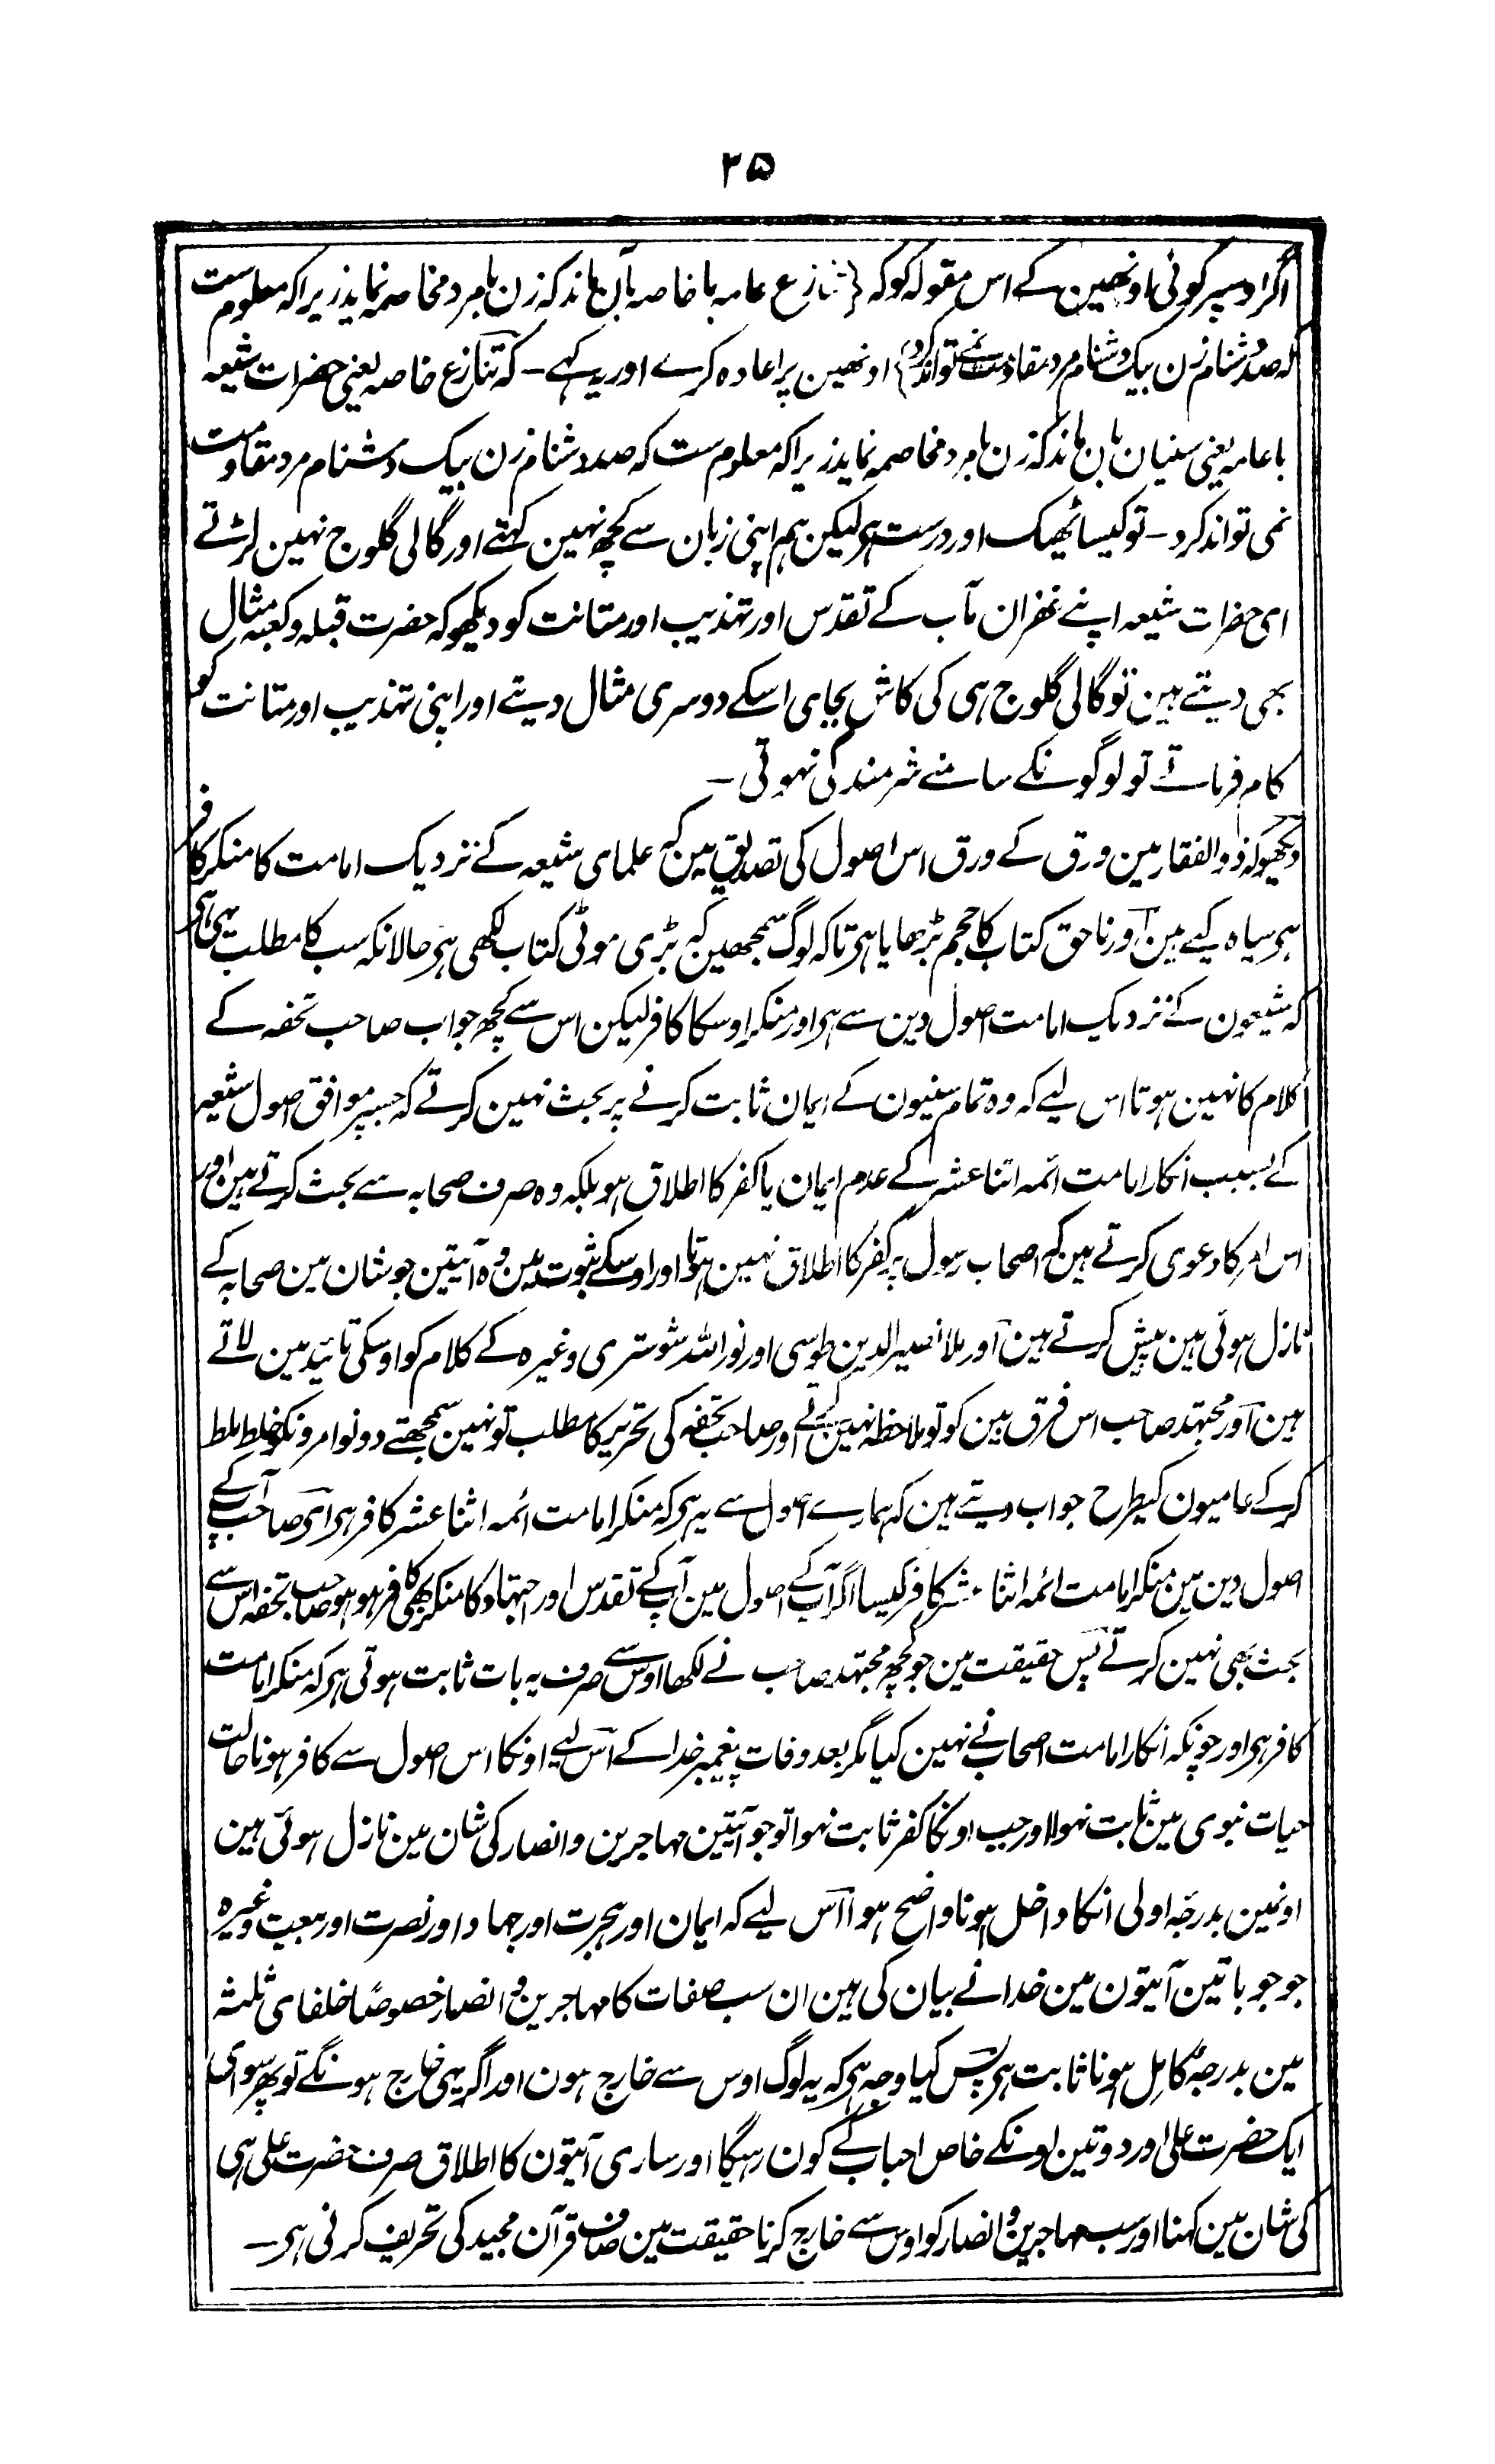 ۲۵
اگر اوسپر کوئی اونھین کے اس مقولہ کو کہ {تنازع عامہ با خاصہ بآن ماند کہ زن با مرد مخاصمہ نماید زیرا کہ معلوم ست
کہ صد دشنام زن بیک دشنام مرد مقاومت نمے تواند کرد} اونھین پر اعادہ کرے اور یہ کہے – کہ تنازع خاصہ یعنی حضرات شیعہ
با عامہ یعنی سنیان بان ماند کہ زن با مرد مخاصمہ نماید زیرا کہ معلوم ست کہ صد دشنام زن بیک دشنام مرد مقاومت
نمی تواند کرد – تو کیسا ٹھیک اور درست ہی لیکن ہم اپنی زبان سے کچھ نہین کہتے اور گالی گلوج نہین لڑتے
ای حضرات شیعہ اپنے غفران مآب کے تقدس اور تہذیب اور متانت کو دیکھو کہ حضرت قبلہ و کعبہ مثال
بھی دیتے ہین تو گالی گلوج ہی کی کاش بجای اسکے دوسری مثال دیتے اور اپنی تہذیب اور متانت کو
کام فرماتے تو لوگونکے سامنے شرمندگی نہوتی –
دیکھو کہ ذوالفقار مین ورق کے ورق اس اصول کی تصدیق مین کہ علمای شیعہ کے نزدیک امامت کا منکر کافر
ہی سیاہ کیے ہین اور ناحق کتاب کا حجم بڑھایا ہی تاکہ لوگ سمجھین کہ بڑی موٹی کتاب لکھی ہی حالانکہ سب کا مطلب یہی ہی
کہ شیعون کے نزدیک امامت اصول دین سے ہی اور منکر اوسکا کافر لیکن اس سے کچھ جواب صاحب تحفہ کے
کلام کا نہین ہوتا اس لیے کہ وہ تمام سنیون کے ایمان ثابت کرنے پر بحث نہین کرتے کہ جسپر موافق اصول شیعہ
کے بسبب انکار امامت ائمہ اثنا عشر کے عدم ایمان یا کفر کا اطلاق ہو بلکہ وہ صرف صحابہ سے بحث کرتے ہین اور
اس امر کا دعوی کرتے ہین کہ اصحاب رسول پر کفر کا اطلاق نہین ہوتا اور اوسکے ثبوت مین وہ آیتین جو شان مین صحابہ کے
نازل ہوئی ہین پیش کرتے ہین اور ملا نصیر الدین طوسی اور نور اللہ شوستری وغیرہ کے کلام کو اوسکی تائید مین لاتے
ہین اور مجتہد صاحب اس فرق بین کو تو ملاحظہ نہین کرتے اور صاحب تحفہ کی تحریر کا مطلب تو نہین سمجھتے دونو امرونکو خلط ملط
کر کے عامیون کیطرح جواب دیتے ہین کہ ہمارے اصول سے یہ ہی کہ منکر امامت ائمہ اثنا عشر کافر ہی ای صاحب آپ کے
اصول دین مین منکر امامت ائمہ اثنا عشر کافر کیسا اگر آپ کے اصول مین آپ کے تقدس اور اجتہاد کا منکر بھی کافر ہو ہو صاحب تحفہ اس سے
بحث بھی نہین کرتے پس حقیقت مین جو کچھ مجتہد صاحب نے لکھا اوس سے صرف یہ بات ثابت ہوتی ہی کہ منکر امامت
کافر ہی اور چونکہ انکار امامت اصحاب نے نہین کیا مگر بعد وفات پیغمبر خدا کے اس لیے اونکا اس اصول سے کافر ہونا حالت
حیات نبوی مین ثابت نہوا اور جب اونکا کفر ثابت نہوا تو جو آیتین مہاجرین و انصار کی شان مین نازل ہوئی ہین
اونمین بدرجہ اولی انکا داخل ہونا واضح ہوا اس لیے کہ ایمان اور ہجرت اور جہاد اور نصرت اور بیعت وغیرہ
جو جو باتین آیتون مین خدا نے بیان کی ہین ان سب صفات کا مہاجرین و انصار خصوصًا خلفای ثلثہ
مین بدرجۂ کامل ہونا ثابت ہی پس کیا وجہ ہی کہ یہ لوگ اوس سے خارج ہون اور اگر یہی خارج ہونگے تو پھر سوای
ایک حضرت علی اور دو تین اونکے خاص احباب کے کون رہیگا اور ساری آیتون کا اطلاق صرف حضرت علی ہی
کی شان مین کہنا اور سب مہاجرین و انصار کو اوس سے خارج کرنا حقیقت مین صاف قرآن مجید کی تحریف کرنی ہی –